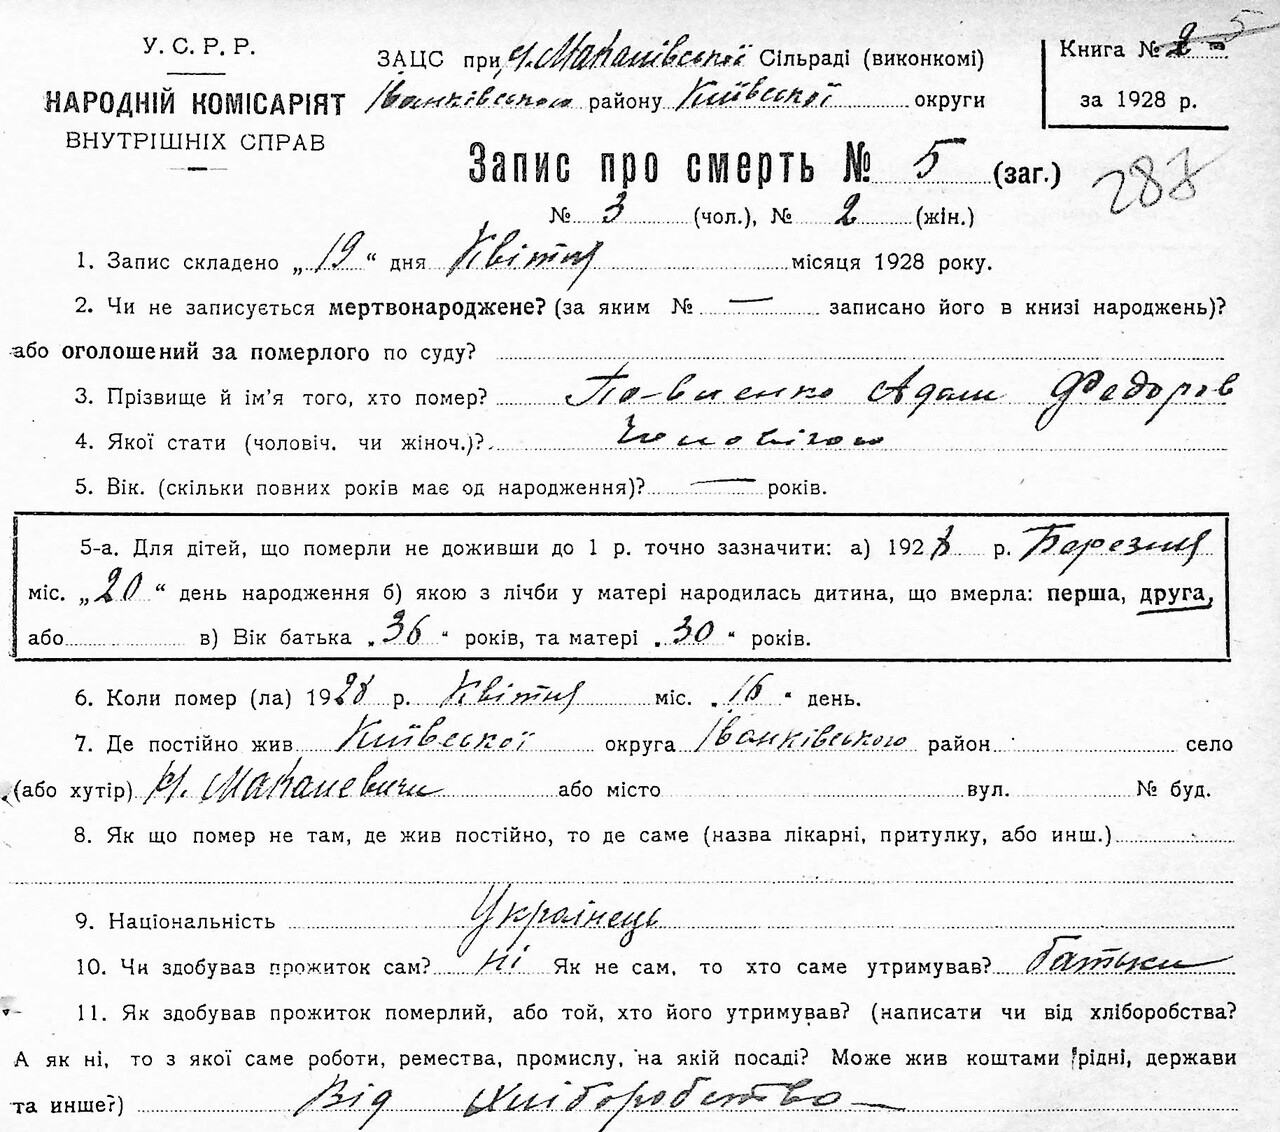 У. С. Р. Р.
НАРОДНІЙ КОМІСАРІЯТ
ВНУТРІШНІХ СПРАВ
ЗАЦС при Сільраді (виконкомі)
Іванківського району Київської округи
Книга № 2 5
за 1928 р.
Запис про смерть № 5 (заг.)
№ 3 (чол.), № 2 (жін.)
287
1. Запис складено „19“ дня Квітня місяця 1928 року.
2. Чи не записується мертвонароджене? (за яким № — записано його в книзі народжень)?
або оголошений за померлого по суду?
3. Прізвище й ім'я того, хто помер? Адам Федоров
4. Якої стати (чоловіч. чи жіноч.)? Чоловічою
5. Вік. (скільки повних років має од народження)? — років.
5-а. Для дітей, що померли не доживши до 1 р. точно зазначити: а) 1928 р. Березня
міс. „20“ день народження б) якою з лічби у матері народилась дитина, що вмерла: перша, друга,
або в) Вік батька „36“ років, та матері „30“ років.
6. Коли помер (ла) 1928 р. Квітня міс. „16“ день.
7. Де постійно жив Київської округа Іванківського район село
(або хутір) с. Макалевичи або місто вул. № буд.
8. Як що помер не там, де жив постійно, то де саме (назва лікарні, притулку, або инш.)
9. Національність Українець
10. Чи здобував прожиток сам? ні Як не сам, то хто саме утримував? батьки
11. Як здобував прожиток померлий, або той, хто його утримував? (написати чи від хліборобства?
А як ні, то з якої саме роботи, ремества, промислу, на якій посаді? Може жив коштами рідні, держави
та инше?) Від Хліборобство —